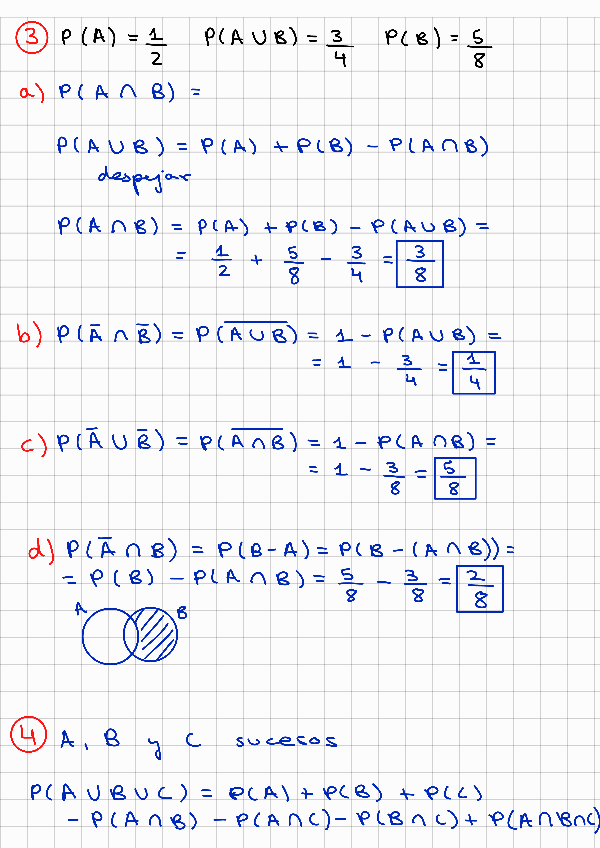 ③ P(A) = 1/2   P(A ∪ B) = 3/4   P(B) = 5/8
a) P(A ∩ B) =
P(A ∪ B) = P(A) + P(B) - P(A ∩ B)
despejar
P(A ∩ B) = P(A) + P(B) - P(A ∪ B) =
= 1/2 + 5/8 - 3/4 = 3/8
b) P(A̅ ∩ B̅) = P(A̅ ̅∪̅ ̅B̅) = 1 - P(A ∪ B) =
= 1 - 3/4 = 1/4
c) P(A̅ ∪ B̅) = P(A̅ ̅∩̅ ̅B̅) = 1 - P(A ∩ B) =
= 1 - 3/8 = 5/8
d) P(A̅ ∩ B) = P(B-A) = P(B - (A ∩ B)) =
= P(B) - P(A ∩ B) = 5/8 - 3/8 = 2/8
A B
④ A, B y C sucesos
P(A ∪ B ∪ C) = P(A) + P(B) + P(C)
- P(A ∩ B) - P(A ∩ C) - P(B ∩ C) + P(A ∩ B ∩ C)